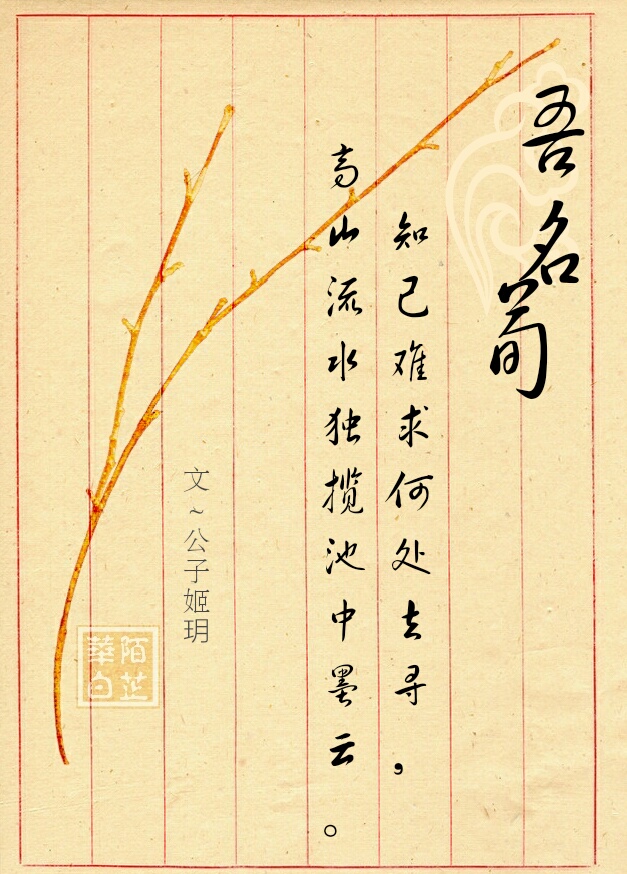 吾名荀
知己难求何处去寻，
高山流水独揽池中墨云。
文~公子姬玥
陌芷
華白